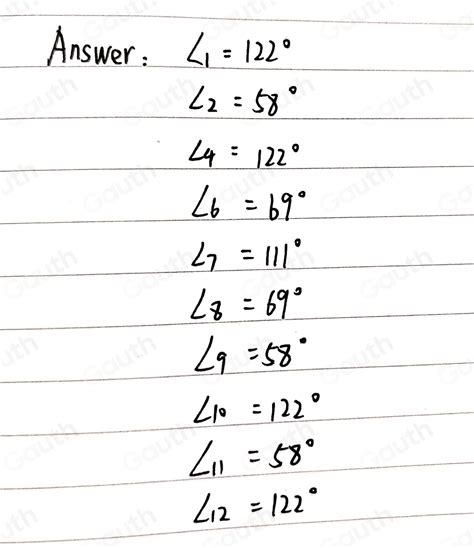 Answer: ∠1 = 122°
∠2 = 58°
∠4 = 122°
∠6 = 69°
∠7 = 111°
∠8 = 69°
∠9 = 58°
∠10 = 122°
∠11 = 58°
∠12 = 122°